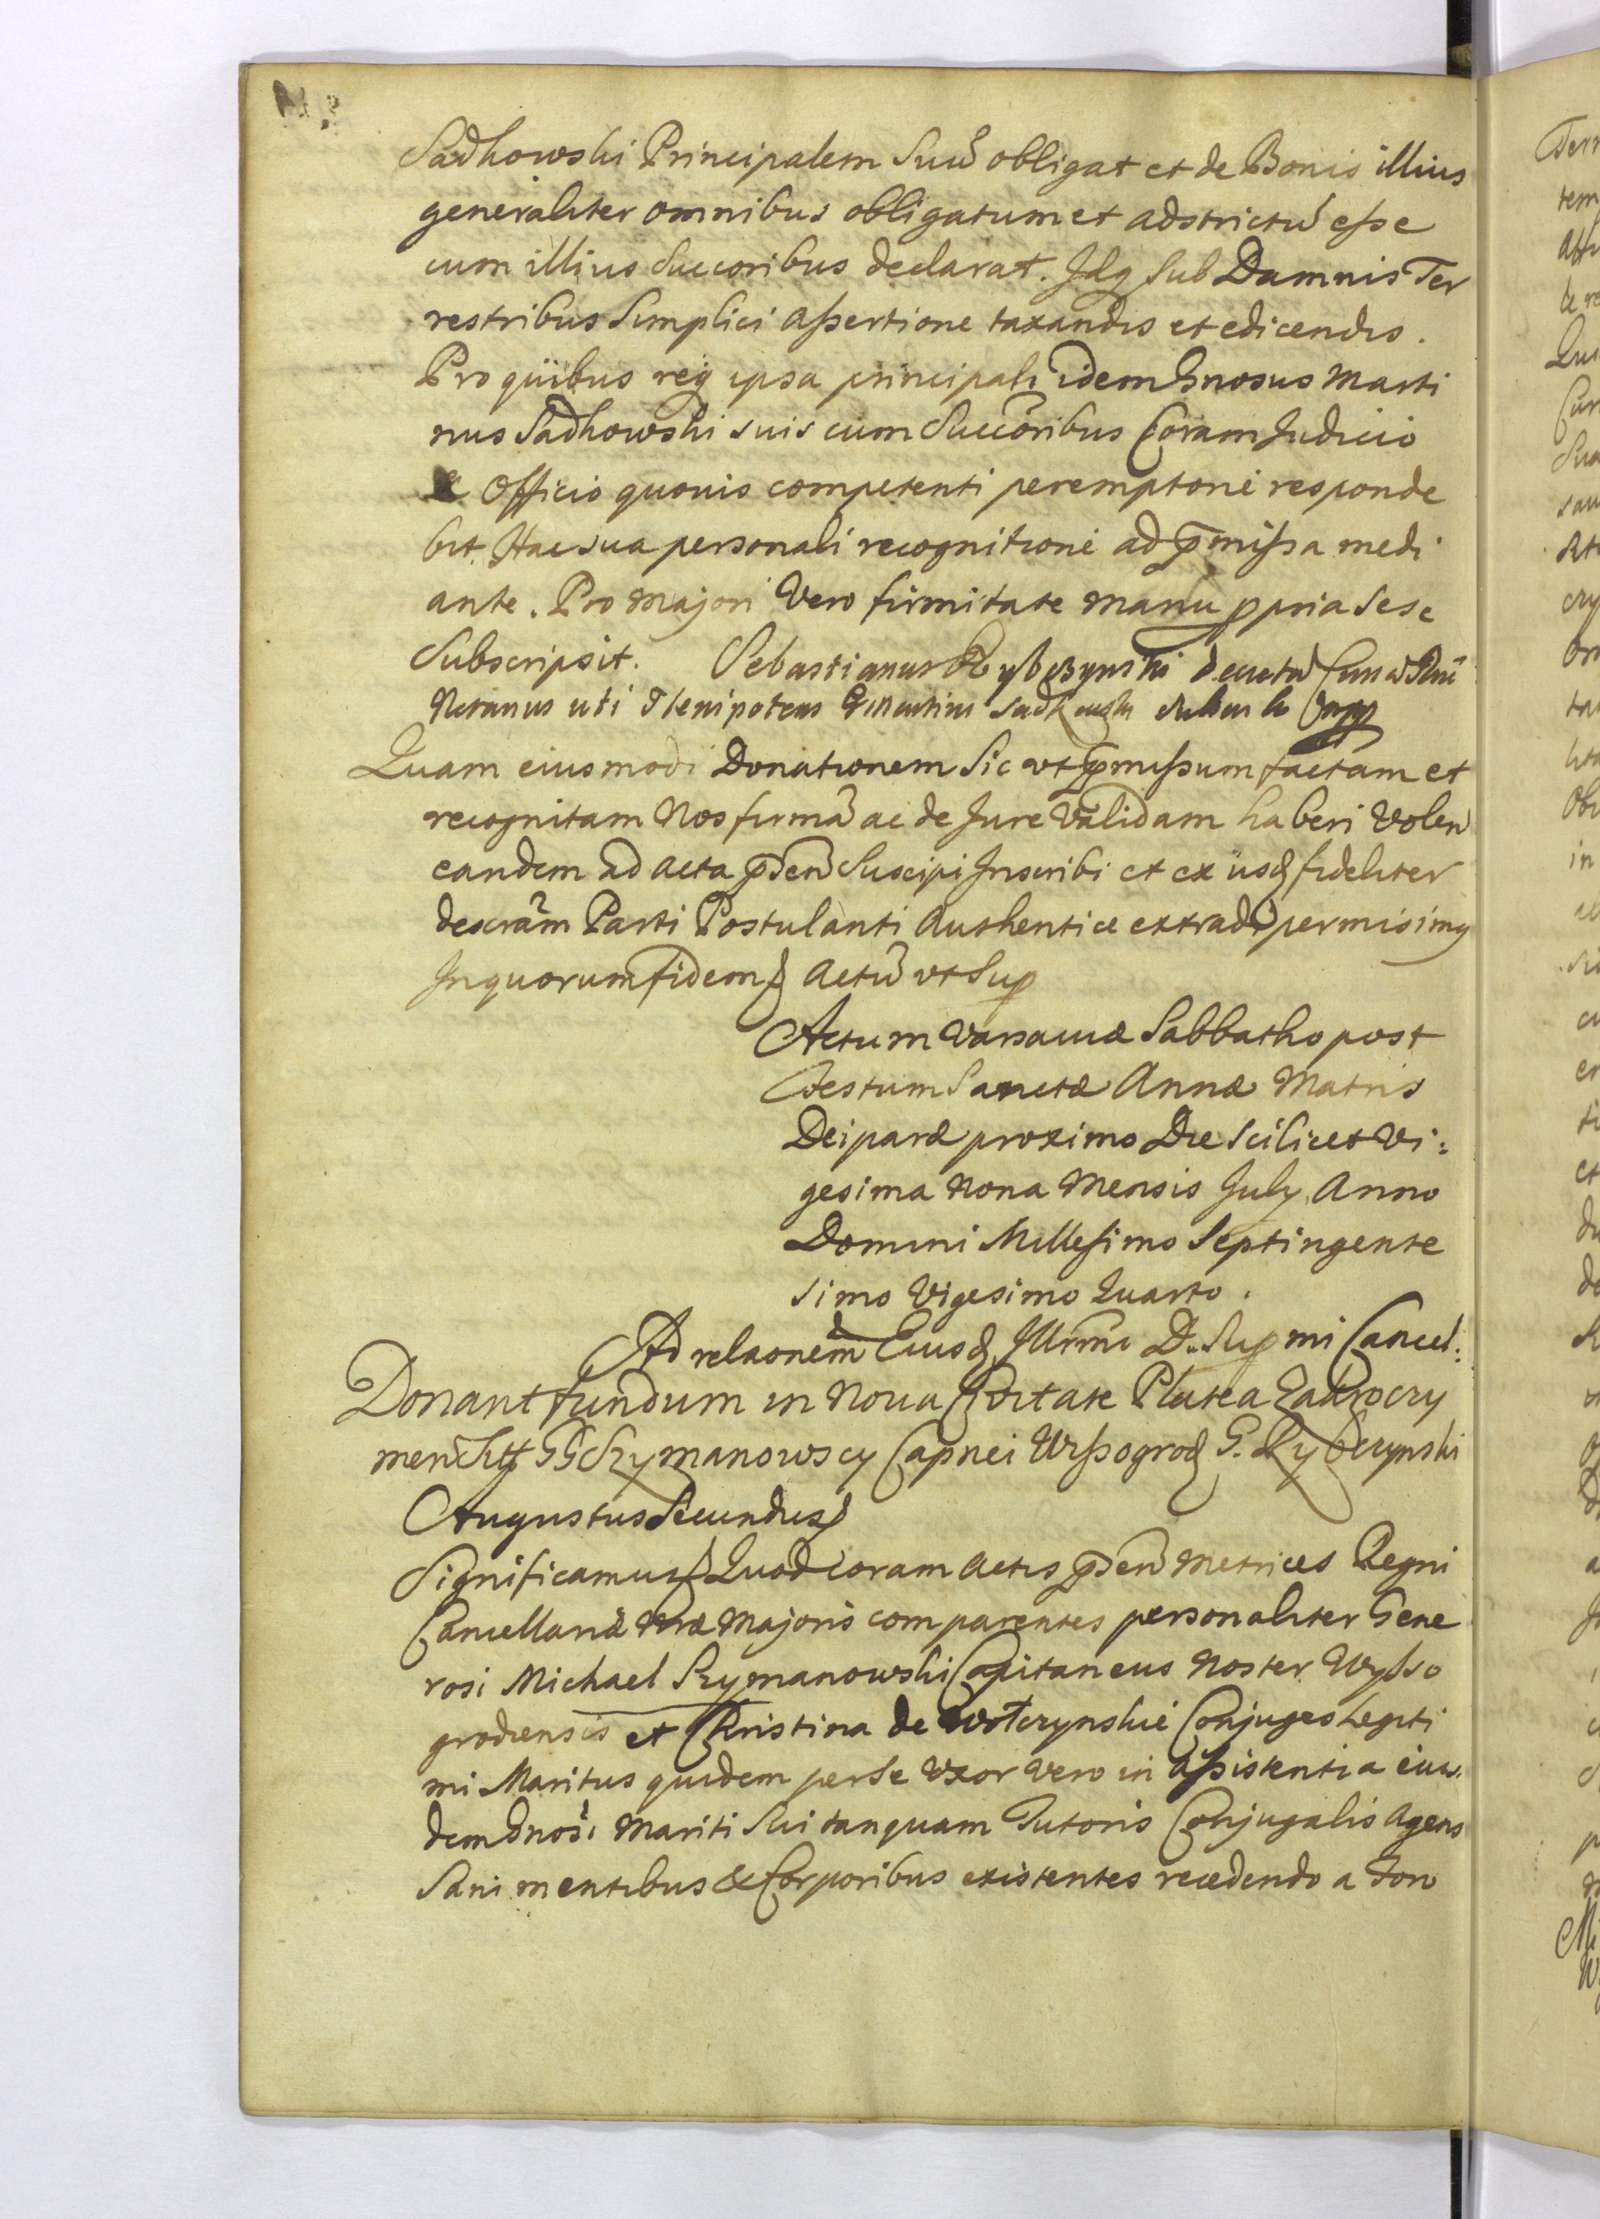 Sadkowski Principalem Suu̅ obligat et de Bonis illius
generaliter omnibus obligatum et adstrictu̅ esse
cum illius Succoribus declarat. Idq Sub Damnis Ter
restribus Simplici assertione taxandis et edicendis.
Pro quibus reg ipsa principali idem Gnosus Marti
nus Sadkowski suis cum Succoribus Coram Judicio
& Officio quouis competenti peremptorie responde
bit. Hac sua personali recognitione ad p̅missa medi
ante. Pro Majori Vero firmitate manu ppria Sese
Subscripsit. Sebastianus Rybczynski
Notarius uti Plenipotens Martini Sadkowski
Quam eiusmodi Donationem Sic vt p̅missum factam et
recognitam Nos firma̅ ac de Jure Validam haberi Volen
eandem ad acta p̅den̅ Suscipi Inscribi et ex iisd fideliter
descra̅m Parti Postulanti Authentice extradi permisimq
In quorum fidem Actu̅ vt Sup
Actum Varsaviæ Sabbatho post
Festum Sanctæ Annæ Matris
Deiparæ proximo Die Scilicet Vi:
gesima Nona Mensis July Anno
Domini Millesimo Septingente
simo Vigesimo Quarto.
Ad relaonem̅ Eiusd Illrmi D. Supmi Cancel:
Donant fundum in Noua Ciuitate Platea Zakroczy
men̅ GG Szymanowscy Capnei Wyssogrod G. Rybczynski
Augustus Secundus
Significamus Quod coram Actis p̅den̅ Metrices Regni
Cancellariæ Nræ Majoris comparentes personaliter Gene
rosi Michael Szymanowski Capitaneus Noster Wysso
grodiensis et Christina de Conjuges Legiti
mi Maritus quidem per se Uxor vero in assistentia eius.
dem Gnosi Mariti Sui tanquam Tutoris Conjugalis Agens
Sani mentibus & Corporibus existentes recedendo a foro